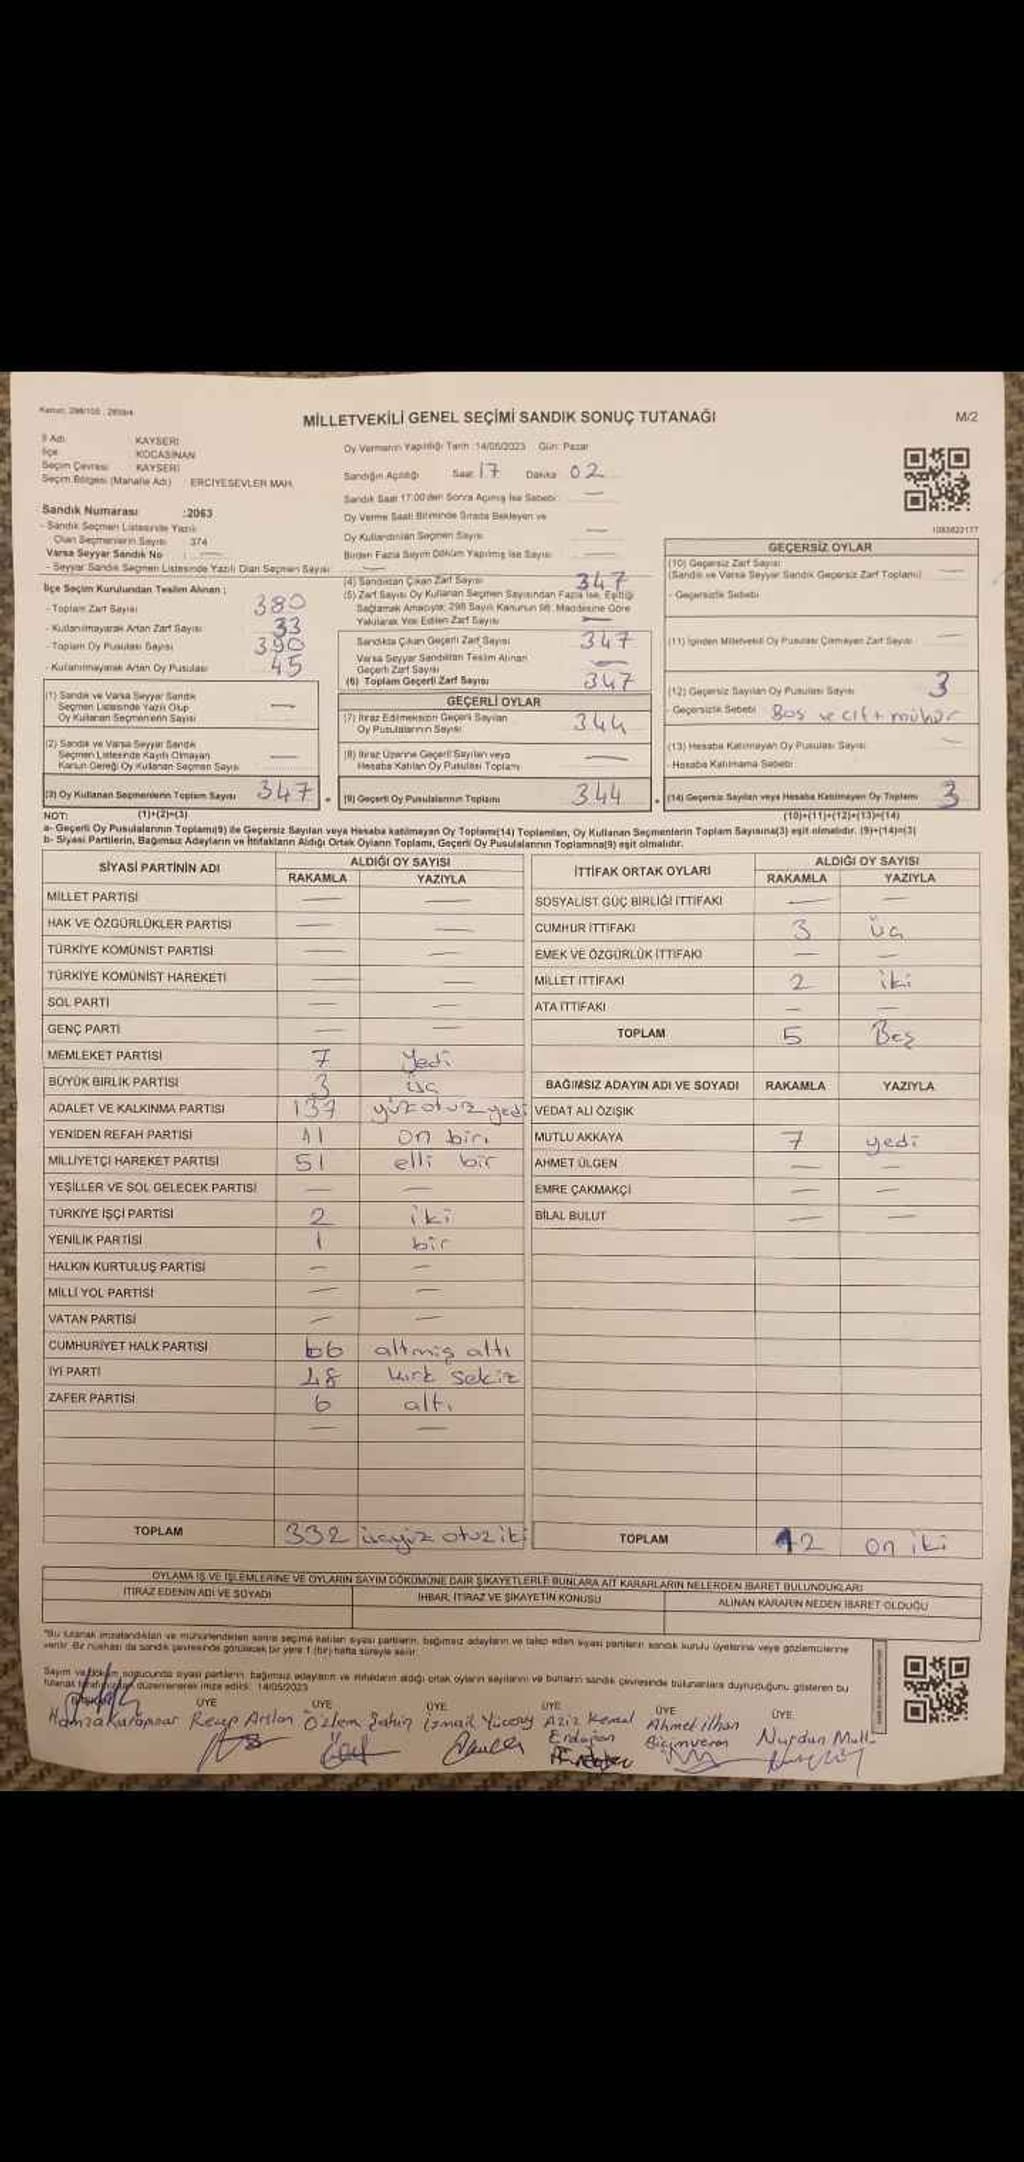 Kanun: 298/105 , 2839/4
MİLLETVEKİLİ GENEL SEÇİMİ SANDIK SONUÇ TUTANAĞI
M/2
İl Adı KAYSERİ
İlçe KOCASİNAN
Seçim Çevresi KAYSERİ
Seçim Bölgesi (Mahalle Adı) ERCİYESEVLER MAH.
Oy Vermenin Yapıldığı Tarih :14/05/2023 Gün: Pazar
Sandığın Açıldığı Saat 17 Dakika 02
Sandık Saat 17:00'den Sonra Açılmış İse Sebebi: —
Oy Verme Saati Bitiminde Sırada Bekleyen ve
Oy Kullandırılan Seçmen Sayısı —
Birden Fazla Sayım Döküm Yapılmış İse Sayısı —
1083822177
Sandık Numarası :2063
- Sandık Seçmen Listesinde Yazılı
Olan Seçmenlerin Sayısı 374
Varsa Seyyar Sandık No : —
- Seyyar Sandık Seçmen Listesinde Yazılı Olan Seçmen Sayısı —
İlçe Seçim Kurulundan Teslim Alınan ;
- Toplam Zarf Sayısı 380
- Kullanılmayarak Artan Zarf Sayısı 33
- Toplam Oy Pusulası Sayısı 390
- Kullanılmayarak Artan Oy Pusulası 45
(1) Sandık ve Varsa Seyyar Sandık
Seçmen Listesinde Yazılı Olup
Oy Kullanan Seçmenlerin Sayısı —
(2) Sandık ve Varsa Seyyar Sandık
Seçmen Listesinde Kayıtlı Olmayan
Kanun Gereği Oy Kullanan Seçmen Sayısı —
(3) Oy Kullanan Seçmenlerin Toplam Sayısı 347
(1)+(2)=(3)
(4) Sandıktan Çıkan Zarf Sayısı 347
(5) Zarf Sayısı Oy Kullanan Seçmen Sayısından Fazla İse, Eşitliği
Sağlamak Amacıyla; 298 Sayılı Kanunun 98. Maddesine Göre
Yakılarak Yok Edilen Zarf Sayısı —
Sandıkta Çıkan Geçerli Zarf Sayısı 347
Varsa Seyyar Sandıktan Teslim Alınan
Geçerli Zarf Sayısı —
(6) Toplam Geçerli Zarf Sayısı 347
GEÇERLİ OYLAR
(7) İtiraz Edilmeksizin Geçerli Sayılan
Oy Pusulalarının Sayısı 344
(8) İtiraz Üzerine Geçerli Sayılan veya
Hesaba Katılan Oy Pusulası Toplamı —
(9) Geçerli Oy Pusulalarının Toplamı 344
GEÇERSİZ OYLAR
(10) Geçersiz Zarf Sayısı
(Sandık ve Varsa Seyyar Sandık Geçersiz Zarf Toplamı) —
- Geçersizlik Sebebi
(11) İçinden Milletvekili Oy Pusulası Çıkmayan Zarf Sayısı —
(12) Geçersiz Sayılan Oy Pusulası Sayısı 3
- Geçersizlik Sebebi Boş ve çift mühür
(13) Hesaba Katılmayan Oy Pusulası Sayısı —
- Hesaba Katılmama Sebebi
(14) Geçersiz Sayılan veya Hesaba Katılmayan Oy Toplamı 3
(10)+(11)+(12)+(13)=(14)
NOT:
a- Geçerli Oy Pusulalarının Toplamı(9) ile Geçersiz Sayılan veya Hesaba katılmayan Oy Toplamı(14) Toplamları, Oy Kullanan Seçmenlerin Toplam Sayısına(3) eşit olmalıdır. (9)+(14)=(3)
b- Siyasi Partilerin, Bağımsız Adayların ve İttifakların Aldığı Ortak Oyların Toplamı, Geçerli Oy Pusulalarının Toplamına(9) eşit olmalıdır.
SİYASİ PARTİNİN ADI ALDIĞI OY SAYISI
RAKAMLA YAZIYLA
MİLLET PARTİSİ — —
HAK VE ÖZGÜRLÜKLER PARTİSİ — —
TÜRKİYE KOMÜNİST PARTİSİ — —
TÜRKİYE KOMÜNİST HAREKETİ — —
SOL PARTİ — —
GENÇ PARTİ — —
MEMLEKET PARTİSİ 7 Yedi
BÜYÜK BİRLİK PARTİSİ 3 üç
ADALET VE KALKINMA PARTİSİ 137 yüz otuz yedi
YENİDEN REFAH PARTİSİ 11 on bir
MİLLİYETÇİ HAREKET PARTİSİ 51 elli bir
YEŞİLLER VE SOL GELECEK PARTİSİ — —
TÜRKİYE İŞÇİ PARTİSİ 2 iki
YENİLİK PARTİSİ 1 bir
HALKIN KURTULUŞ PARTİSİ — —
MİLLİ YOL PARTİSİ — —
VATAN PARTİSİ — —
CUMHURİYET HALK PARTİSİ 66 altmış altı
İYİ PARTİ 48 kırk sekiz
ZAFER PARTİSİ 6 altı
— —
TOPLAM 332 üçyüz otuz iki
İTTİFAK ORTAK OYLARI ALDIĞI OY SAYISI
RAKAMLA YAZIYLA
SOSYALİST GÜÇ BİRLİĞİ İTTİFAKI — —
CUMHUR İTTİFAKI 3 üç
EMEK VE ÖZGÜRLÜK İTTİFAKI — —
MİLLET İTTİFAKI 2 iki
ATA İTTİFAKI — —
TOPLAM 5 Beş
BAĞIMSIZ ADAYIN ADI VE SOYADI RAKAMLA YAZIYLA
VEDAT ALİ ÖZIŞIK
MUTLU AKKAYA 7 yedi
AHMET ÜLGEN — —
EMRE ÇAKMAKÇİ — —
BİLAL BULUT — —
TOPLAM 12 on iki
OYLAMA İŞ VE İŞLEMLERİNE VE OYLARIN SAYIM DÖKÜMÜNE DAİR ŞİKAYETLERLE BUNLARA AİT KARARLARIN NELERDEN İBARET BULUNDUKLARI
İTİRAZ EDENİN ADI VE SOYADI İHBAR, İTİRAZ VE ŞİKAYETİN KONUSU ALINAN KARARIN NEDEN İBARET OLDUĞU
"Bu tutanak imzalandıktan ve mühürlendikten sonra seçime katılan siyasi partilerin, bağımsız adayların ve talep eden siyasi partilerin sandık kurulu üyelerine veya gözlemcilerine
verilir. Bir nüshası da sandık çevresinde görülecek bir yere 1 (bir) hafta süreyle asılır.
Sayım ve döküm sonucunda siyasi partilerin, bağımsız adayların ve ittifakların aldığı ortak oyların sayılarını ve bunların sandık çevresinde bulunanlara duyrulduğunu gösteren bu
tutanak tarafımızdan düzenlenerek imza edildi. 14/05/2023
ÜYE ÜYE ÜYE ÜYE ÜYE ÜYE
Hamza Karapınar Recep Arslan Özlem Şahin İsmail Yücesoy Aziz Kemal Erdoğan Ahmet ilhan Biçimveren Nurdan